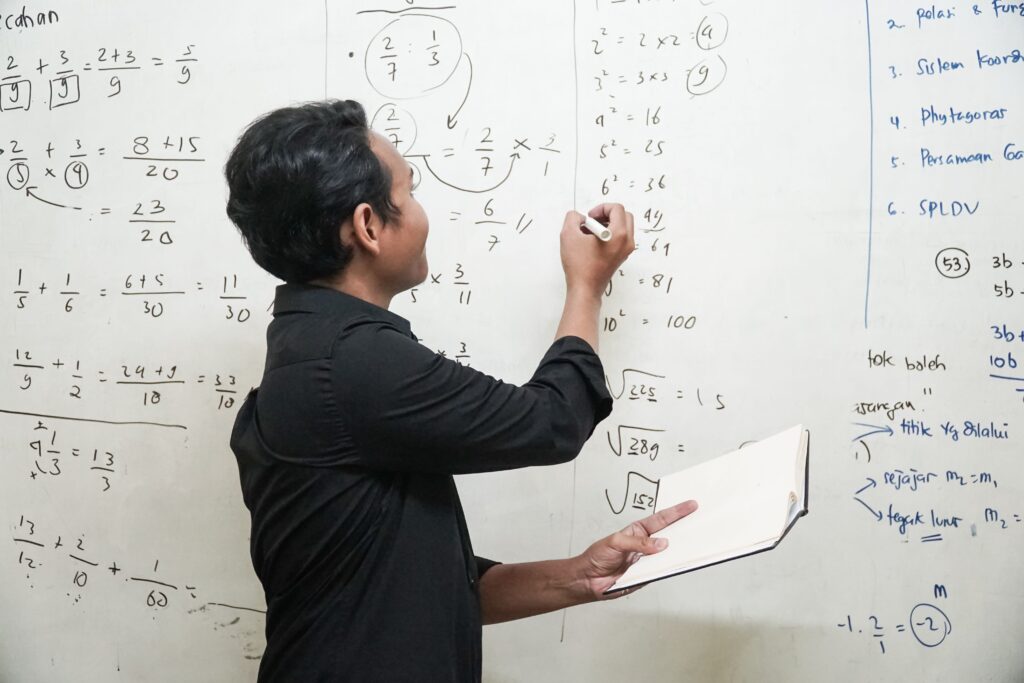 cahan
2/9 + 3/9 = 2+3/9 = 5/9
2/5 × 3/4 = 8+15/20
= 23/20
1/5 + 1/6 = 6+5/30 = 11/30
12/9 + 1/2 = 24+9/18 = 33/18
4 1/3 = 13/3
13/12 + 2/10 + 1/60 =
2/7 : 1/3
2/7 = 2/7 × 3/1
= 6/7 //
× 3/11
2² = 2 × 2 = 4
3² = 3 × 3 = 9
4² = 16
5² = 25
6² = 36
49
= 64
² = 81
10² = 100
√225 = 15
√289 =
√152
2. Relasi & Fung
3. Sistem Koord
4. Phytagoras
5. Persamaan Ga
6. SPLDV
53. 3b
5b
3b+
10b
tok boleh
"
titik yg dilalui
sejajar m₂=m₁
tegak lurus m₂=
m
-1 . 2/1 = -2